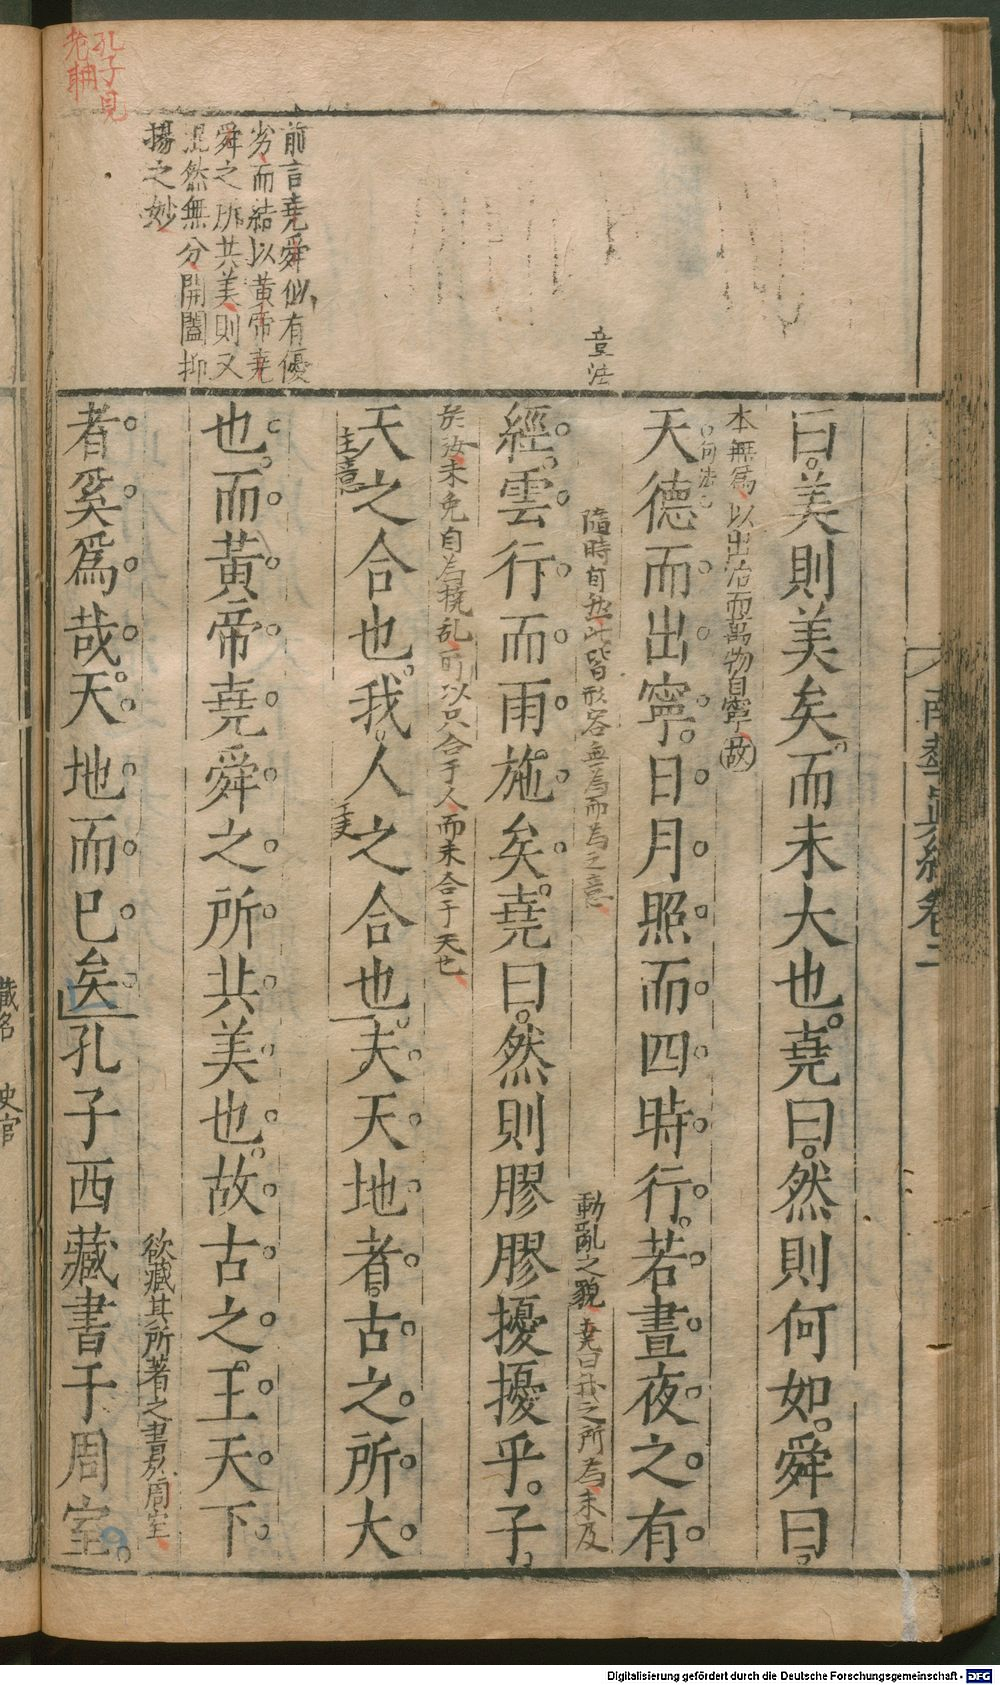 南華眞經卷二
曰美則美矣而未大也堯曰然則何如舜曰
本無爲以出治而萬物自寧故
句法
天德而出寧日月照而四時行若晝夜之有
章法
隨時自然此皆形容無為而為之意
動亂之貌堯曰我之所為未及
經雲行而雨施矣堯曰然則膠膠擾擾乎子
於汝未免自為撓乱可以只合于人而未合于天也
天之合也我人之合也夫天地者古之所大
主意
前言堯舜似有優
劣而結以黃帝堯
舜之所共美則又
混然無分開闔抑
揚之妙
也而黃帝堯舜之所共美也故古之王天下
欲藏其所著之書於周室
者奚爲哉天地而已矣孔子西藏書于周室
孔子見
老聃
藏名 史官
Digitalisierung gefördert durch die Deutsche Forschungsgemeinschaft - DFG